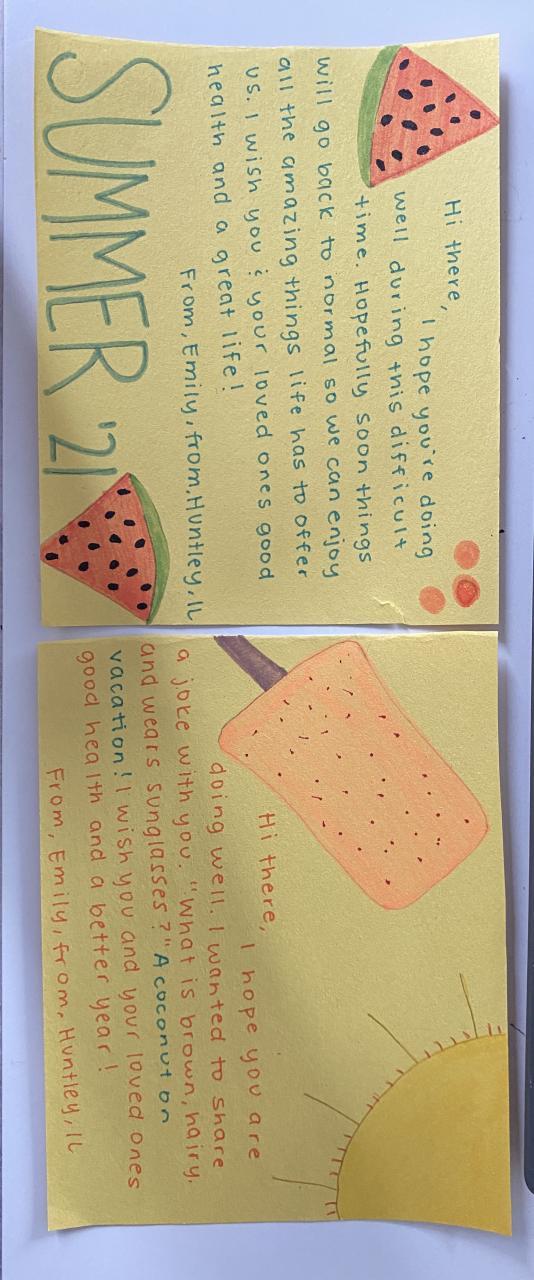 Hi there,
I hope you're doing
well during this difficult
time. Hopefully soon things
will go back to normal so we can enjoy
all the amazing things life has to offer
us. I wish you & your loved ones good
health and a great life!
From, Emily, from, Huntley, IL
SUMMER '21
Hi there,
I hope you are
doing well. I wanted to share
a joke with you. "What is brown, hairy,
and wears sunglasses?" A coconut on
vacation! I wish you and your loved ones
good health and a better year!
From, Emily, from, Huntley, IL